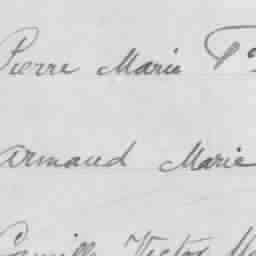 Pierre Marie
Armand Marie
Camille Victor